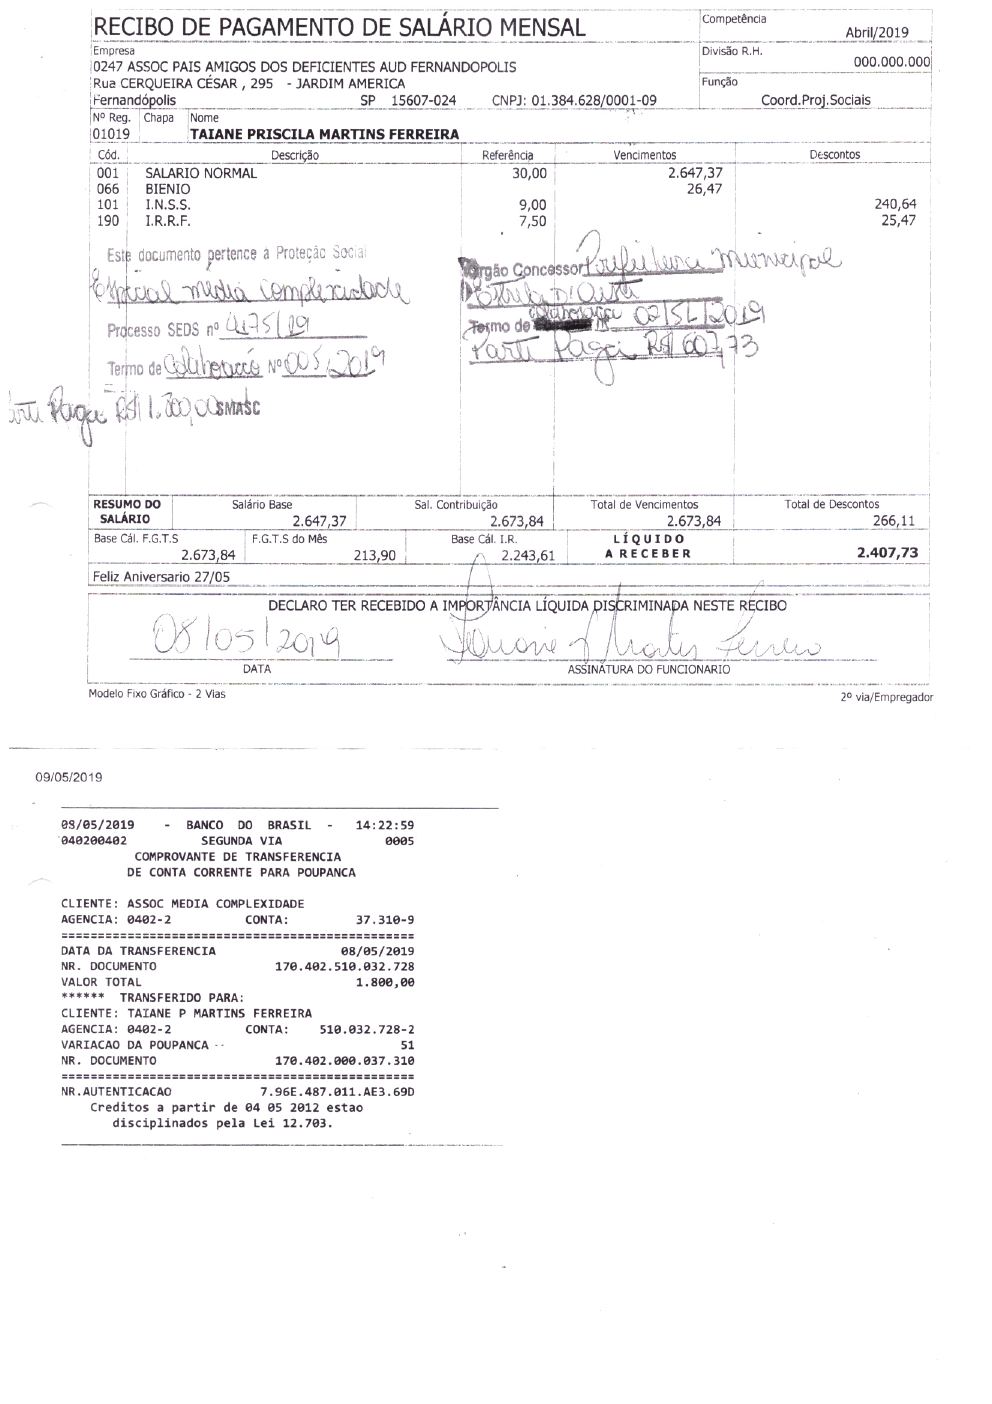 RECIBO DE PAGAMENTO DE SALÁRIO MENSAL
Competência
Abril/2019
Empresa
0247 ASSOC PAIS AMIGOS DOS DEFICIENTES AUD FERNANDOPOLIS
Divisão R.H.
000.000.000
Rua CERQUEIRA CÉSAR , 295 - JARDIM AMERICA
Função
Fernandópolis SP 15607-024 CNPJ: 01.384.628/0001-09 Coord.Proj.Sociais
Nº Reg. Chapa Nome
01019 TAIANE PRISCILA MARTINS FERREIRA
Cód. Descrição Referência Vencimentos Descontos
001 SALARIO NORMAL 30,00 2.647,37
066 BIENIO 26,47
101 I.N.S.S. 9,00 240,64
190 I.R.R.F. 7,50 25,47
Este documento pertence à Proteção Social
Especial média Complexidade
Processo SEDS nº 0175/19
Termo de Colaboração Nº 005/2019
Parti Paga R$ 1.800,00 SMASC
Orgão Concessor Prefeitura Municipal
D'Estrela D'Oeste
Termo de Colaboração 02/SL/2019
Parti Paga R$ 607,73
RESUMO DO SALÁRIO
Salário Base Sal. Contribuição Total de Vencimentos Total de Descontos
2.647,37 2.673,84 2.673,84 266,11
Base Cál. F.G.T.S F.G.T.S do Mês Base Cál. I.R. LÍQUIDO A RECEBER
2.673,84 213,90 2.243,61 2.407,73
Feliz Aniversario 27/05
DECLARO TER RECEBIDO A IMPORTÂNCIA LÍQUIDA DISCRIMINADA NESTE RECIBO
08/05/2019
DATA ASSINATURA DO FUNCIONARIO
Modelo Fixo Gráfico - 2 Vias 2º via/Empregador
09/05/2019
08/05/2019 - BANCO DO BRASIL - 14:22:59
040200402 SEGUNDA VIA 0005
COMPROVANTE DE TRANSFERENCIA
DE CONTA CORRENTE PARA POUPANCA
CLIENTE: ASSOC MEDIA COMPLEXIDADE
AGENCIA: 0402-2 CONTA: 37.310-9
DATA DA TRANSFERENCIA 08/05/2019
NR. DOCUMENTO 170.402.510.032.728
VALOR TOTAL 1.800,00
****** TRANSFERIDO PARA:
CLIENTE: TAIANE P MARTINS FERREIRA
AGENCIA: 0402-2 CONTA: 510.032.728-2
VARIACAO DA POUPANCA 51
NR. DOCUMENTO 170.402.000.037.310
NR.AUTENTICACAO 7.96E.487.011.AE3.69D
Creditos a partir de 04 05 2012 estao
disciplinados pela Lei 12.703.